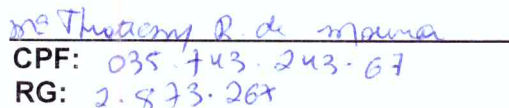 Mª Thatiany R. de Moura
CPF: 035.743.243-67
RG: 2.873.267